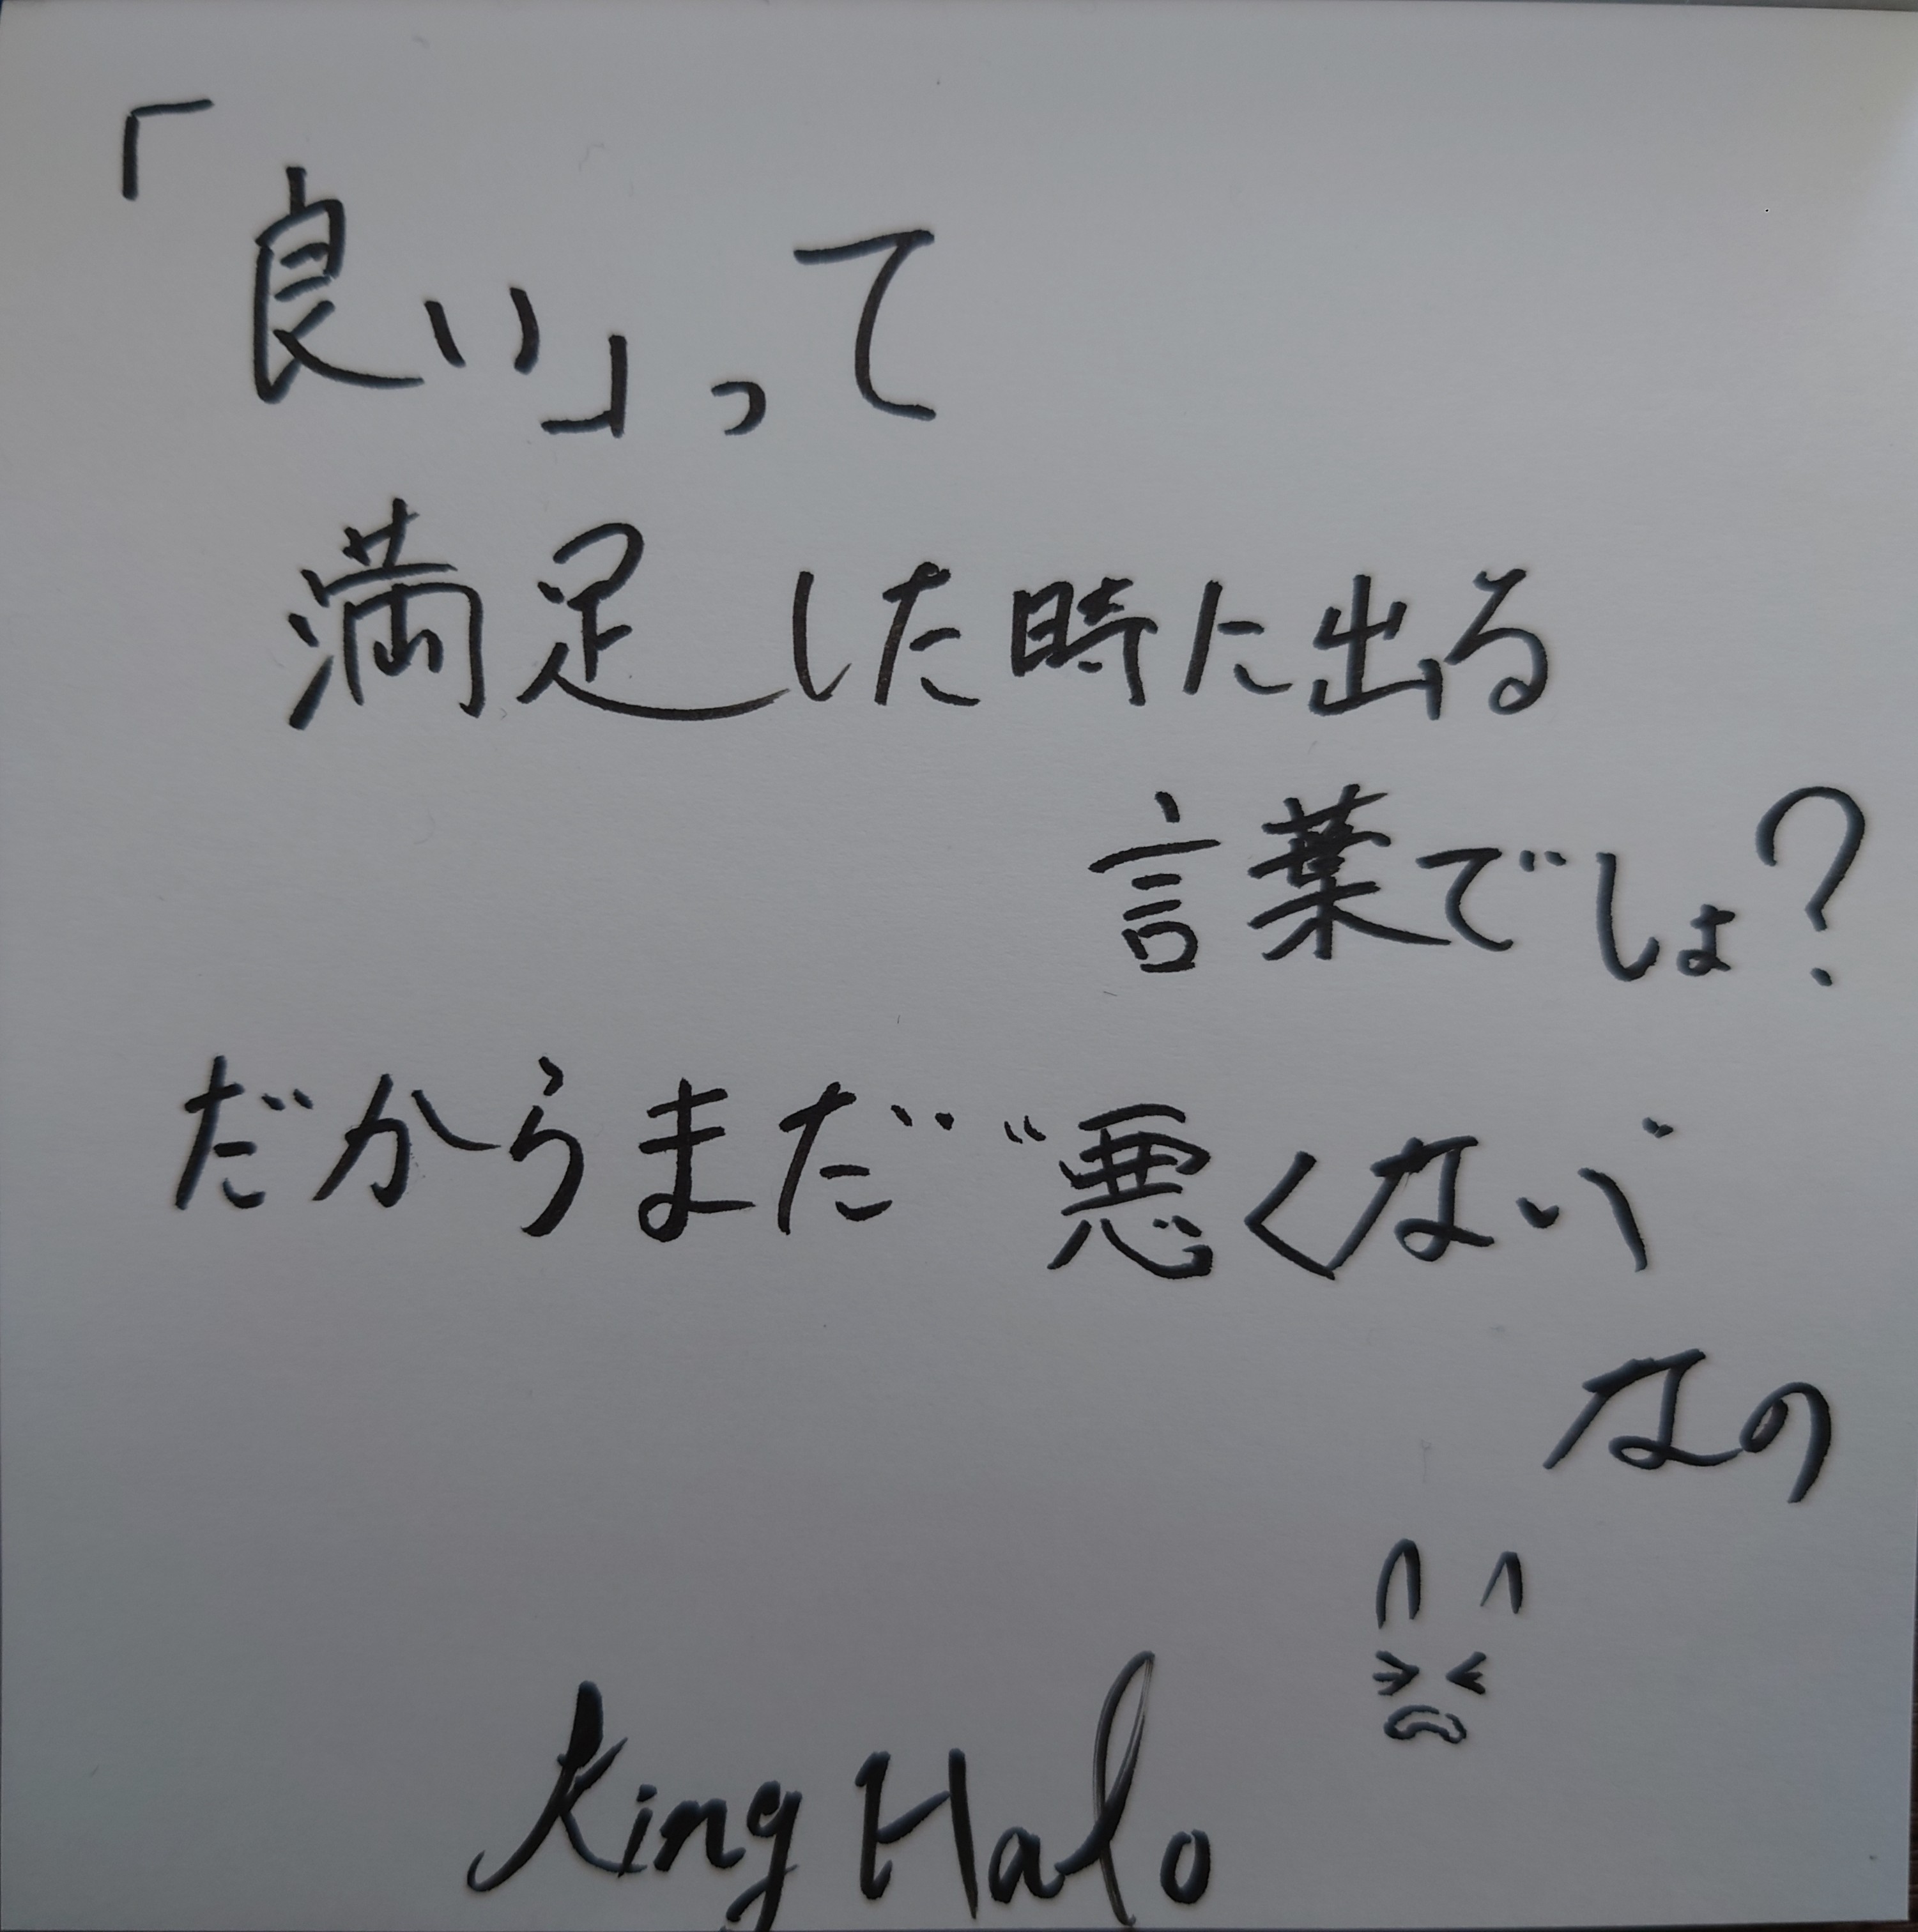 「良い」って
満足した時に出る
言葉でしょ?
だからまだ“悪くない”
なの
King Halo